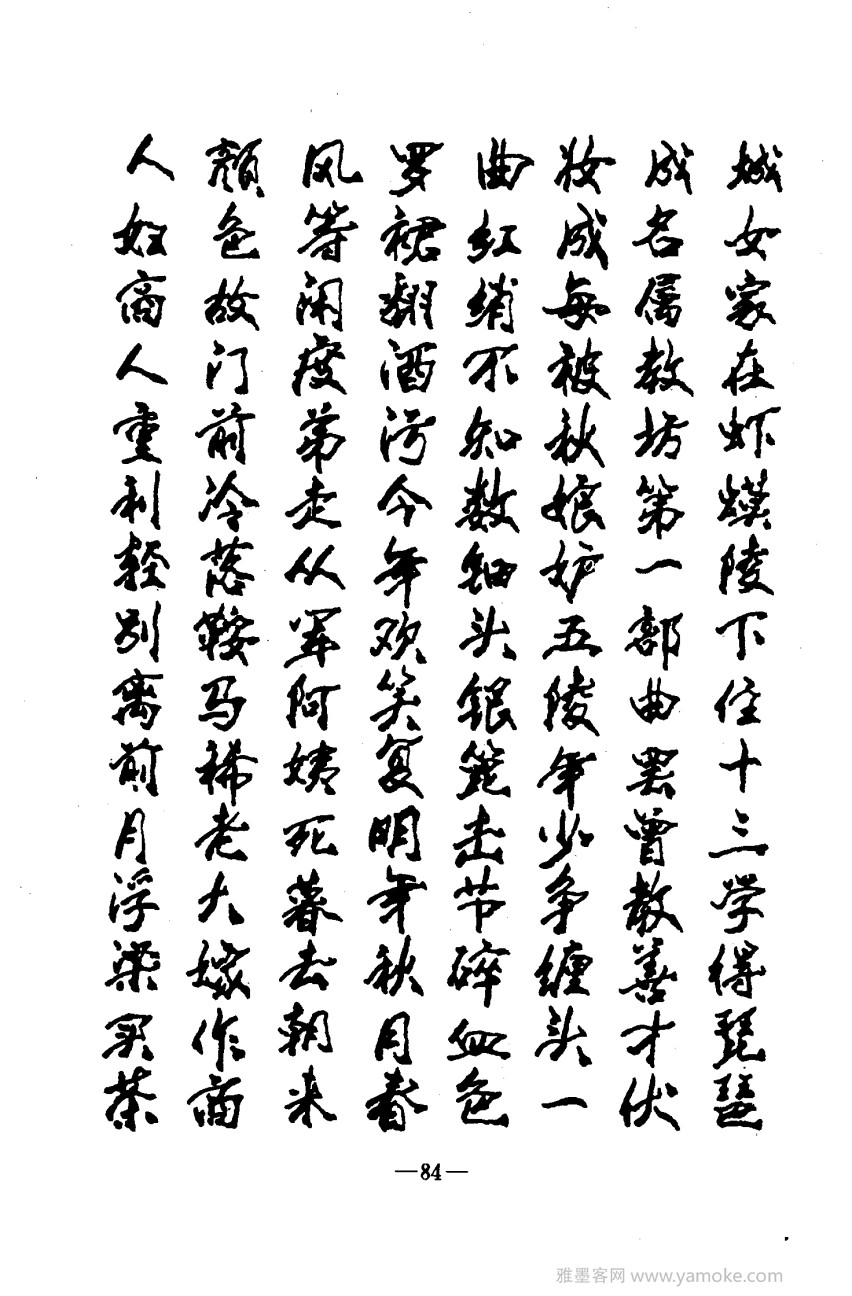 城女家在虾蟆陵下住十三学得琵琶
成名属教坊第一部曲罢曾教善才伏
妆成每被秋娘妒五陵年少争缠头一
曲红绡不知数钿头银篦击节碎血色
罗裙翻酒污今年欢笑复明年秋月春
风等闲度弟走从军阿姨死暮去朝来
颜色故门前冷落鞍马稀老大嫁作商
人妇商人重利轻别离前月浮梁买茶
—84—
雅墨客网 www.yamoke.com